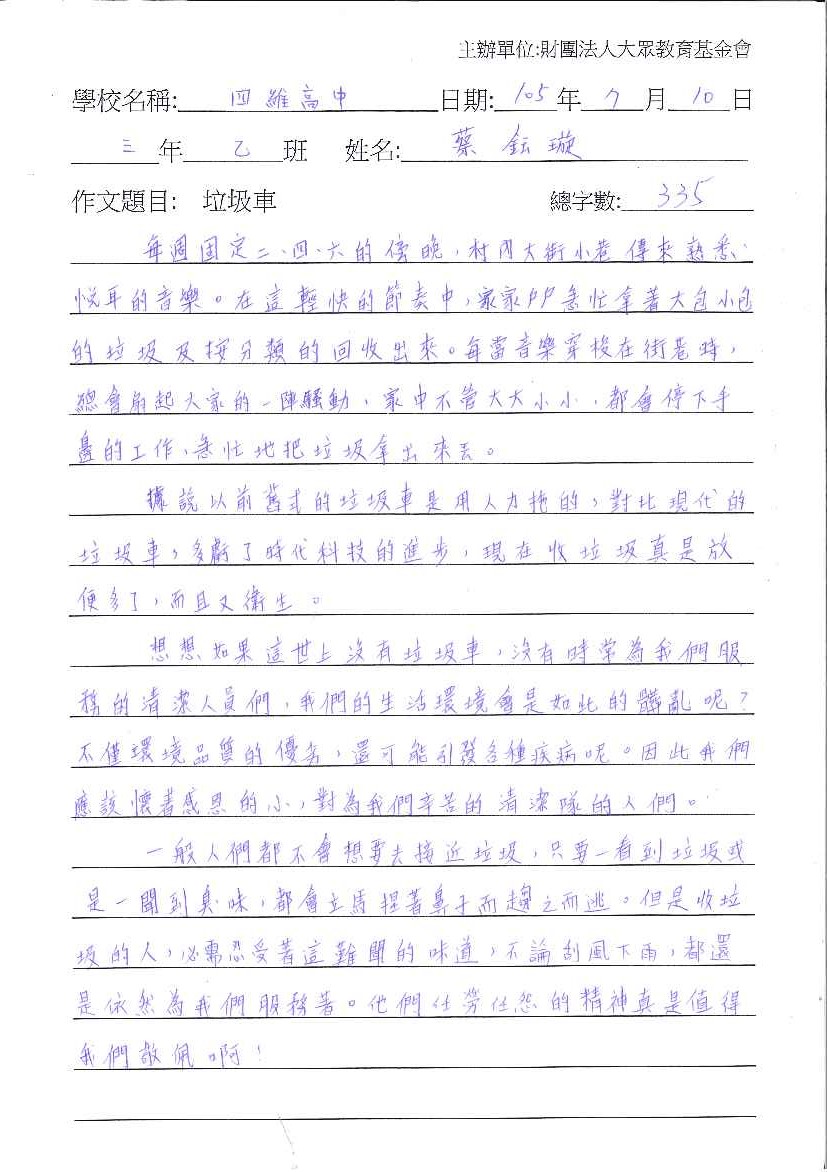 主辦單位:財團法人大眾教育基金會
學校名稱: 四維高中 日期: 105 年 7 月 10 日
三 年 乙 班 姓名: 蔡鈜璇
作文題目: 垃圾車 總字數: 335
每週固定二、四、六的傍晚,村內大街小巷傳來熟悉、
悅耳的音樂。在這輕快的節奏中,家家戶戶急忙拿著大包小包
的垃圾及按分類的回收出來。每當音樂穿梭在街巷時,
總會角起大家的一陣騷動,家中不管大大小小,都會停下手
邊的工作,急忙地把垃圾拿出來丟。
據說以前舊式的垃圾車是用人力拖的,對比現代的
垃圾車,多虧了時代科技的進步,現在收垃圾真是放
便多了,而且又衛生。
想想如果這世上沒有垃圾車,沒有時常為我們服
務的清潔人員們,我們的生活環境會是如此的髒亂呢?
不僅環境品質的優劣,還可能引發各種疾病呢。因此我們
應該懷著感恩的心,對為我們辛苦的清潔隊的人們。
一般人們都不會想要去接近垃圾,只要一看到垃圾或
是一聞到臭味,都會立馬捏著鼻子而趨之而逃。但是收垃
圾的人,必需忍受著這難聞的味道,不論刮風下雨,都還
是依然為我們服務著。他們任勞任怨的精神真是值得
我們敬佩啊!